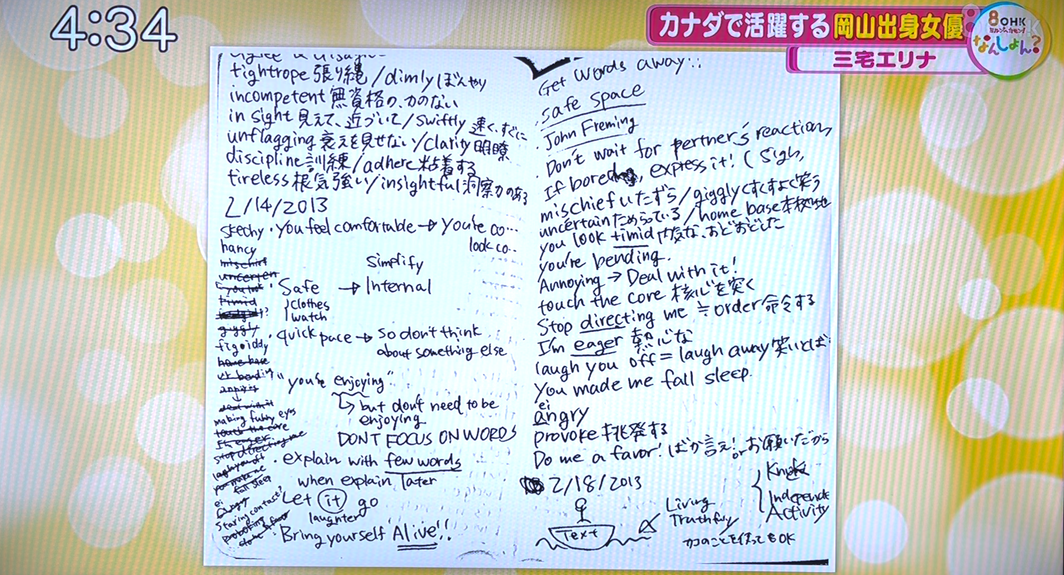 4:34
カナダで活躍する岡山出身女優
三宅エリナ
8 OHK
なんしょん?
tightrope 張り縄/dimly ぼんやり
incompetent 無資格の、力のない
in sight 見えて、近づいて/swiftly 速く、すぐに
unflagging 衰えを見せない/clarity 明瞭
discipline 訓練/adhere 粘着する
tireless 根気強い/insightful 洞察力のある
2/14/2013
skechy・you feel comfortable → you're co…
look co…
hancy
mischief
uncertain
timid
giggly
figgiddy
home base
Simplify
Safe → Internal
clothes
watch
quick pace → so don't think
about something else
"you're enjoying"
↳ but don't need to be
enjoying
DONT FOCUS ON WORDS
・explain with few words
when explain later
deal with it
making funny eyes
touch the core
I'm eager
stop directing me
laugh you off
you made me
fall sleep
ei
angry
staring contact
Let it go
laughter
・Bring yourself 'Alive'!!
Get words away…
safe space
John Freming
・Don't wait for partner's reaction,
If bored, express it! (sigh,
mischief いたずら/giggly くすくす笑う
uncertain ためらっている/home base 本拠地
you look timid 内気な、おどおどした
you're bending.
Annoying → Deal with it!
touch the core 核心を突く
Stop directing me ≒ order 命令する
I'm eager 熱心な
laugh you off = laugh away 笑いとば
You made me fall sleep.
ei
angry
provoke 挑発する
Do me a favor. ばか言え! or お願いだから
2/18/2013
Text
Living
Truthfully
Independe
Activity